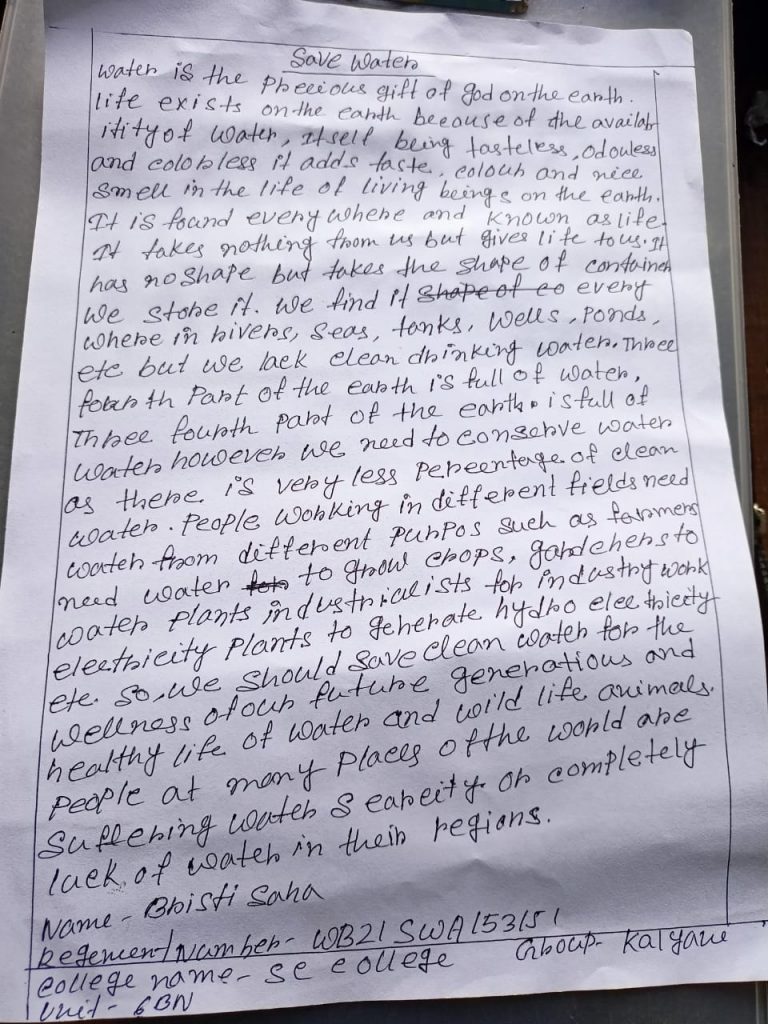 Save Water
Water is the Precious gift of god on the earth.
life exists on the earth because of the availab
itity of water, Itself being tasteless, odouless
and colorless it adds taste, colour and nice
smell in the life of living beings on the earth.
It is found every where and known as life.
It takes nothing from us but gives life to us. It
has no shape but takes the shape of container
We store it. We find it shape of co every
where in rivers, seas, tanks, wells, ponds,
etc but we lack clean drinking water. Three
fourth Part of the earth is full of water,
Three fourth part of the earth. is full of
water however we need to conserve water
as there is very less percentage of clean
water. People working in different fields need
water from different purpos such as farmers
need water for to grow crops, gardeners to
water plants industrialists for industry work
electricity Plants to generate hydro electricity
etc. So, we should save clean water for the
wellness of our future generations and
healthy life of water and wild life animals.
People at many places of the world are
suffering water scarcity or completely
lack of water in their regions.
Name - Bristi Saha
Regement Number - WB21 SWA153151
college name - SC college Group - Kalyani
Unit - 6BN